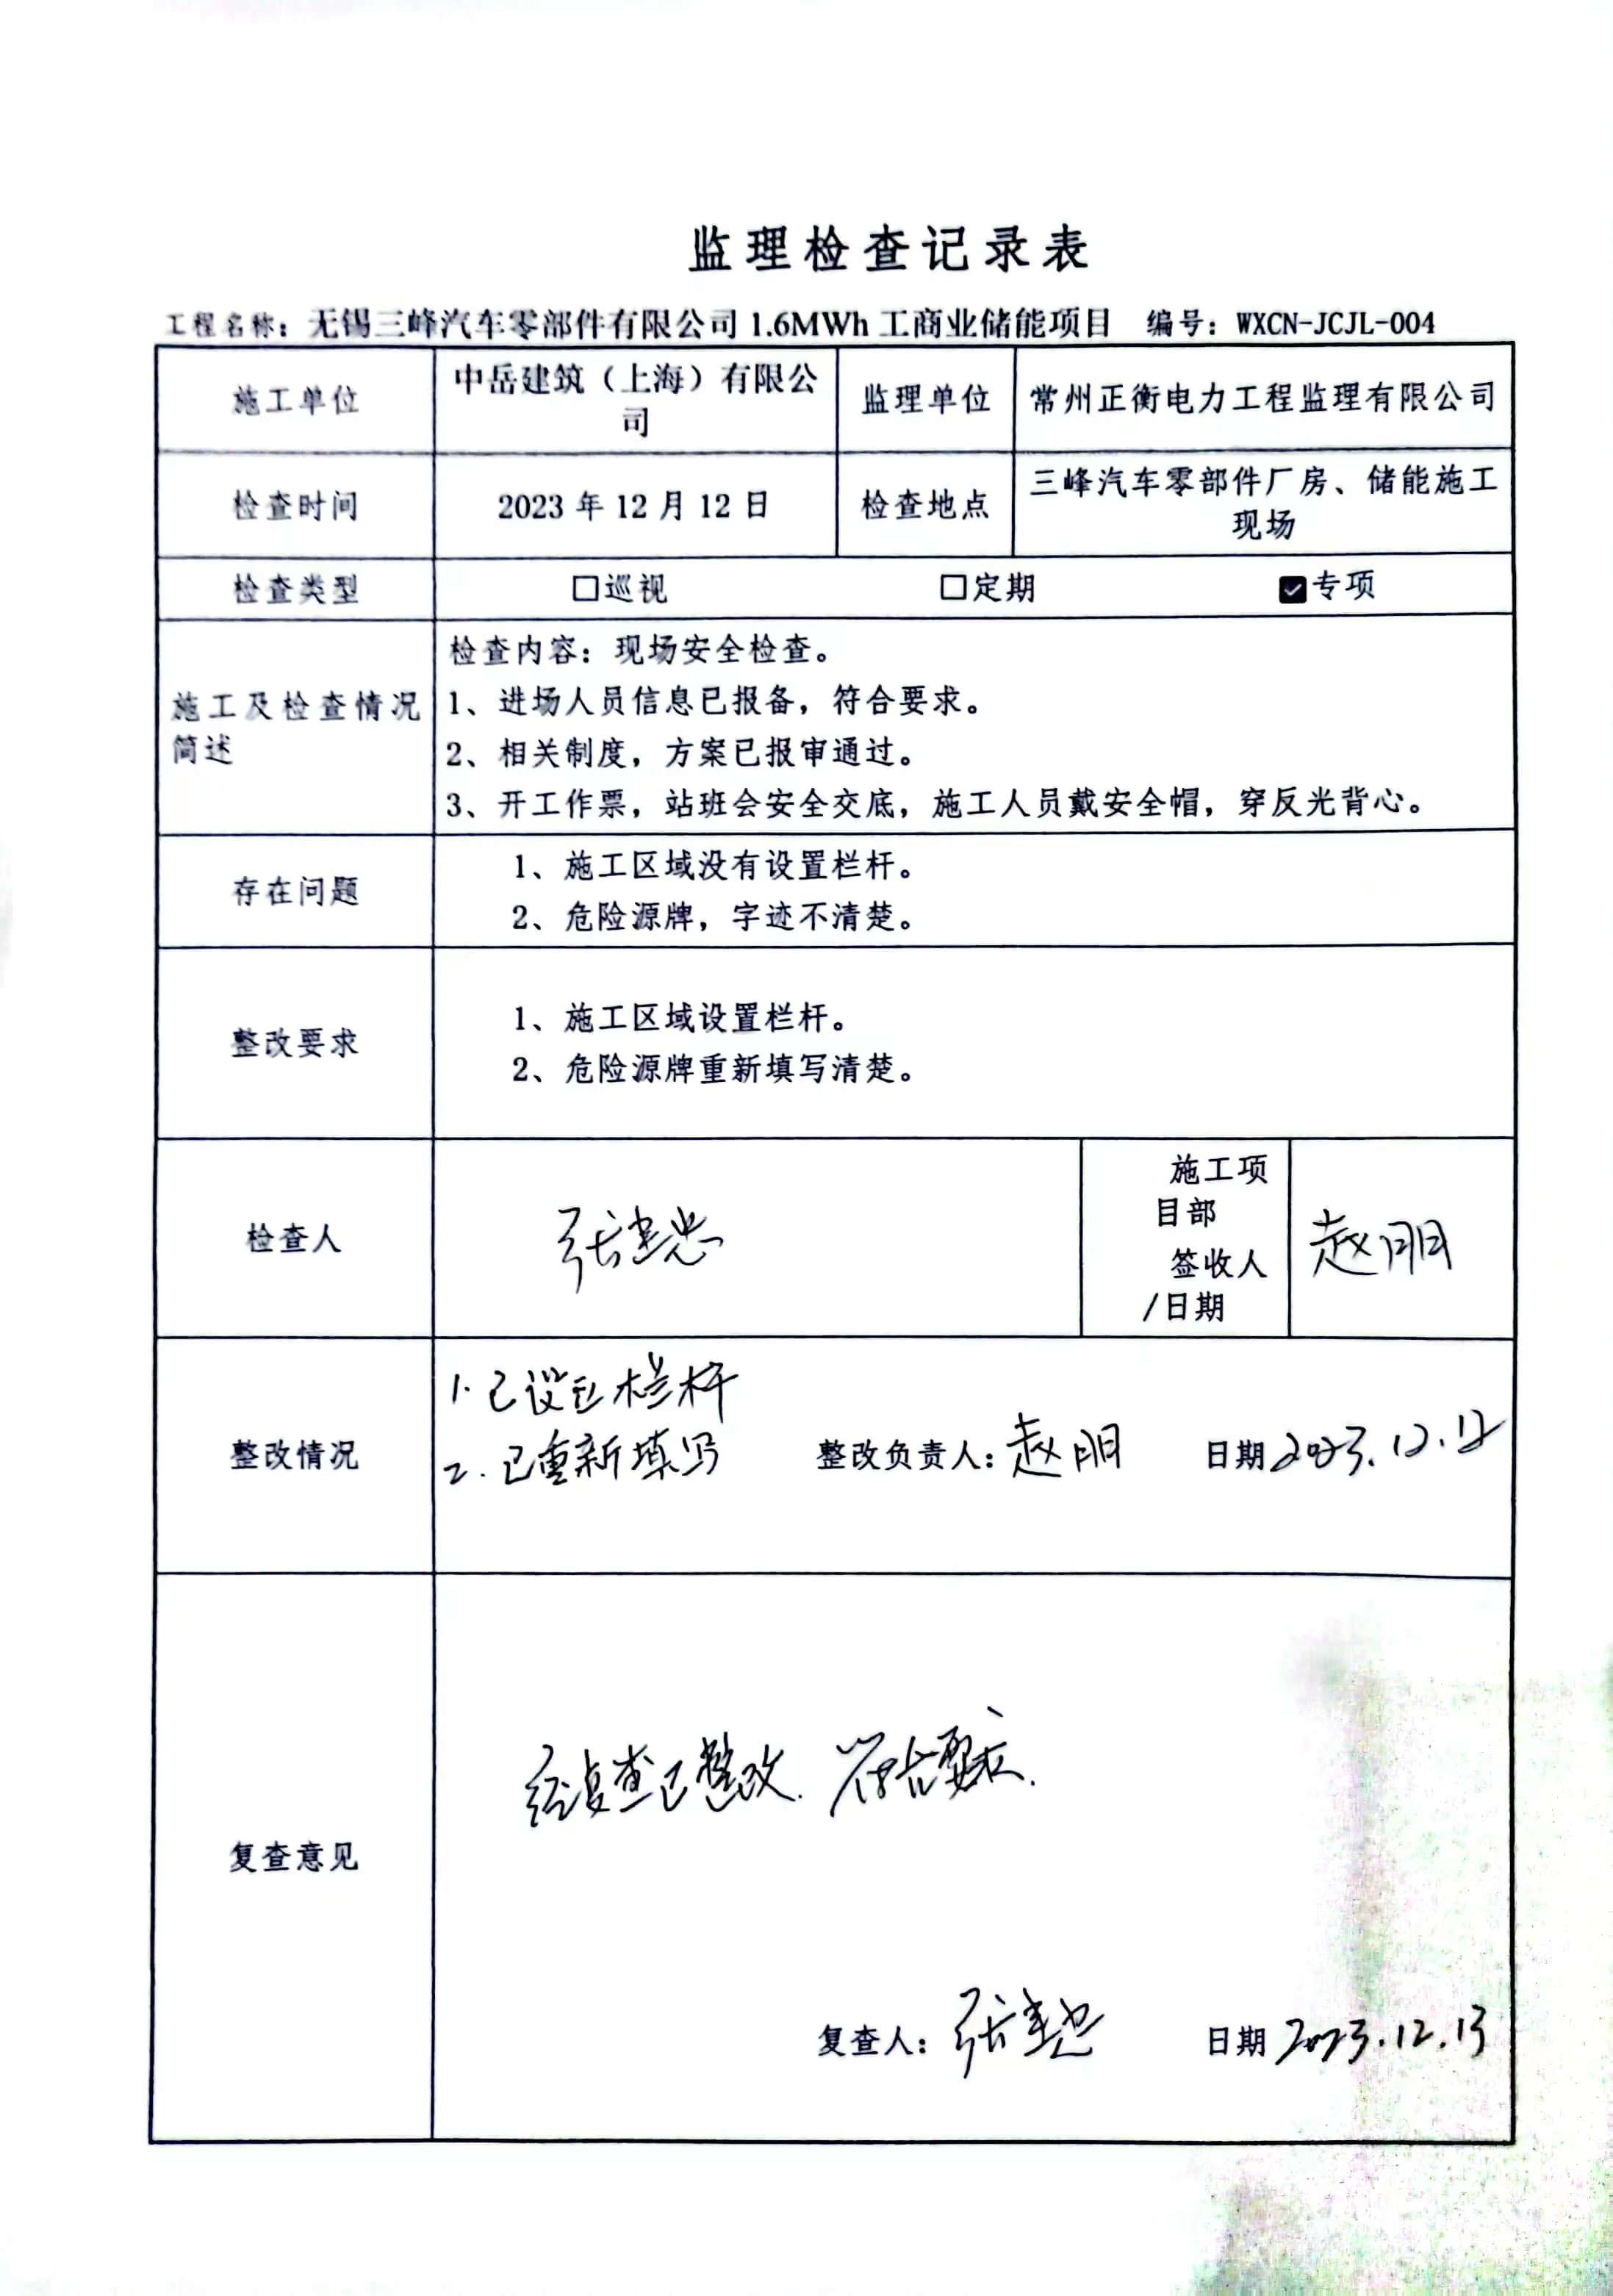 监理检查记录表
工程名称：无锡三峰汽车零部件有限公司 1.6MWh 工商业储能项目 编号：WXCN-JCJL-004
施工单位 中岳建筑（上海）有限公
司 监理单位 常州正衡电力工程监理有限公司
检查时间 2023 年 12 月 12 日 检查地点 三峰汽车零部件厂房、储能施工
现场
检查类型 □巡视 □定期 ☑专项
施工及检查情况
简述
检查内容：现场安全检查。
1、进场人员信息已报备，符合要求。
2、相关制度，方案已报审通过。
3、开工作票，站班会安全交底，施工人员戴安全帽，穿反光背心。
存在问题
1、施工区域没有设置栏杆。
2、危险源牌，字迹不清楚。
整改要求
1、施工区域设置栏杆。
2、危险源牌重新填写清楚。
检查人 张建忠
施工项
目部
签收人
/日期
赵明
整改情况
1.已设立栏杆
2.已重新填写 整改负责人：赵明 日期 2023.12.12
复查意见
经复查已整改.符合要求.
复查人：张建忠 日期 2023.12.13